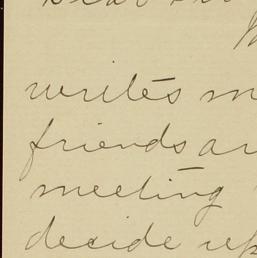 writes m
friends ar
meeting
decide up